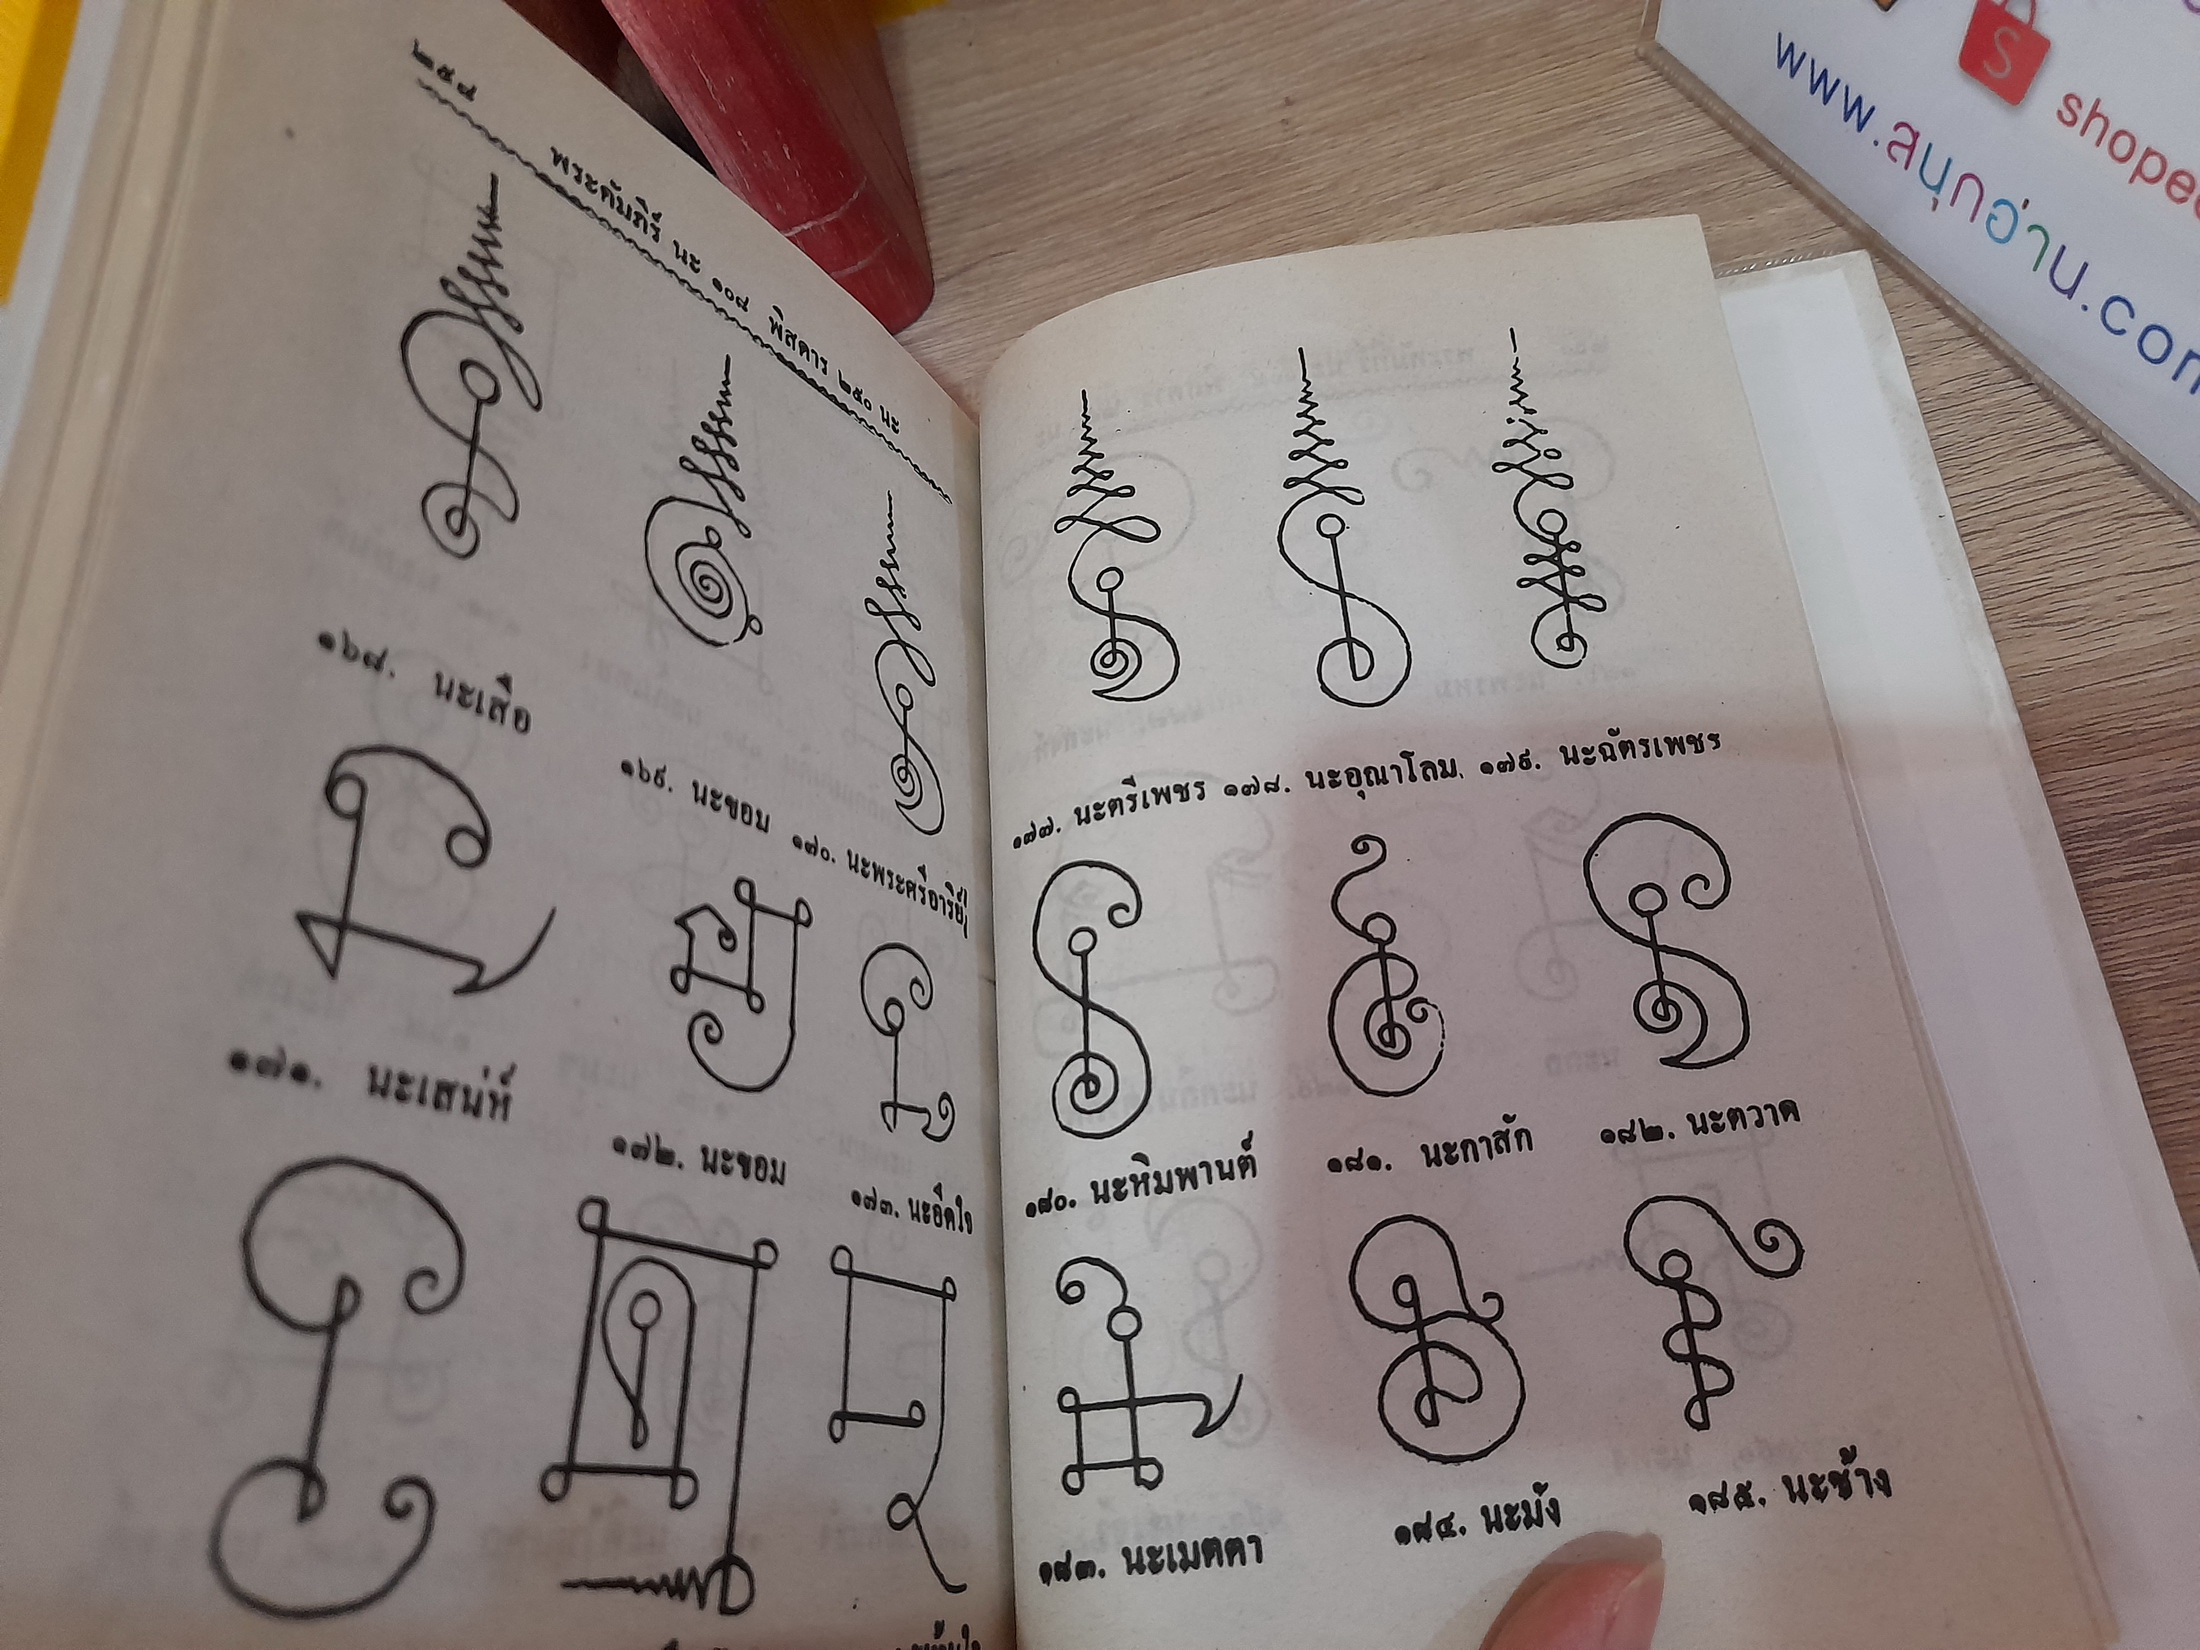 ๒๕๘
พระคัมภีร์ นะ ๑๐๘ พิสดาร ๒๕๐ นะ
๑๖๘. นะเสือ
๑๖๙. นะขอม
๑๗๐. นะพระศรีอาริย์
๑๗๑. นะเสน่ห์
๑๗๒. นะขอม
๑๗๓. นะอึดใจ
๑๗๗. นะตรีเพชร ๑๗๘. นะอุณาโลม. ๑๗๙. นะฉัตรเพชร
๑๘๐. นะหิมพานต์
๑๘๑. นะกาสัก
๑๘๒. นะตวาด
๑๘๓. นะเมตตา
๑๘๔. นะมัง
๑๘๕. นะช้าง
S
www.สนุกอ่าน.com